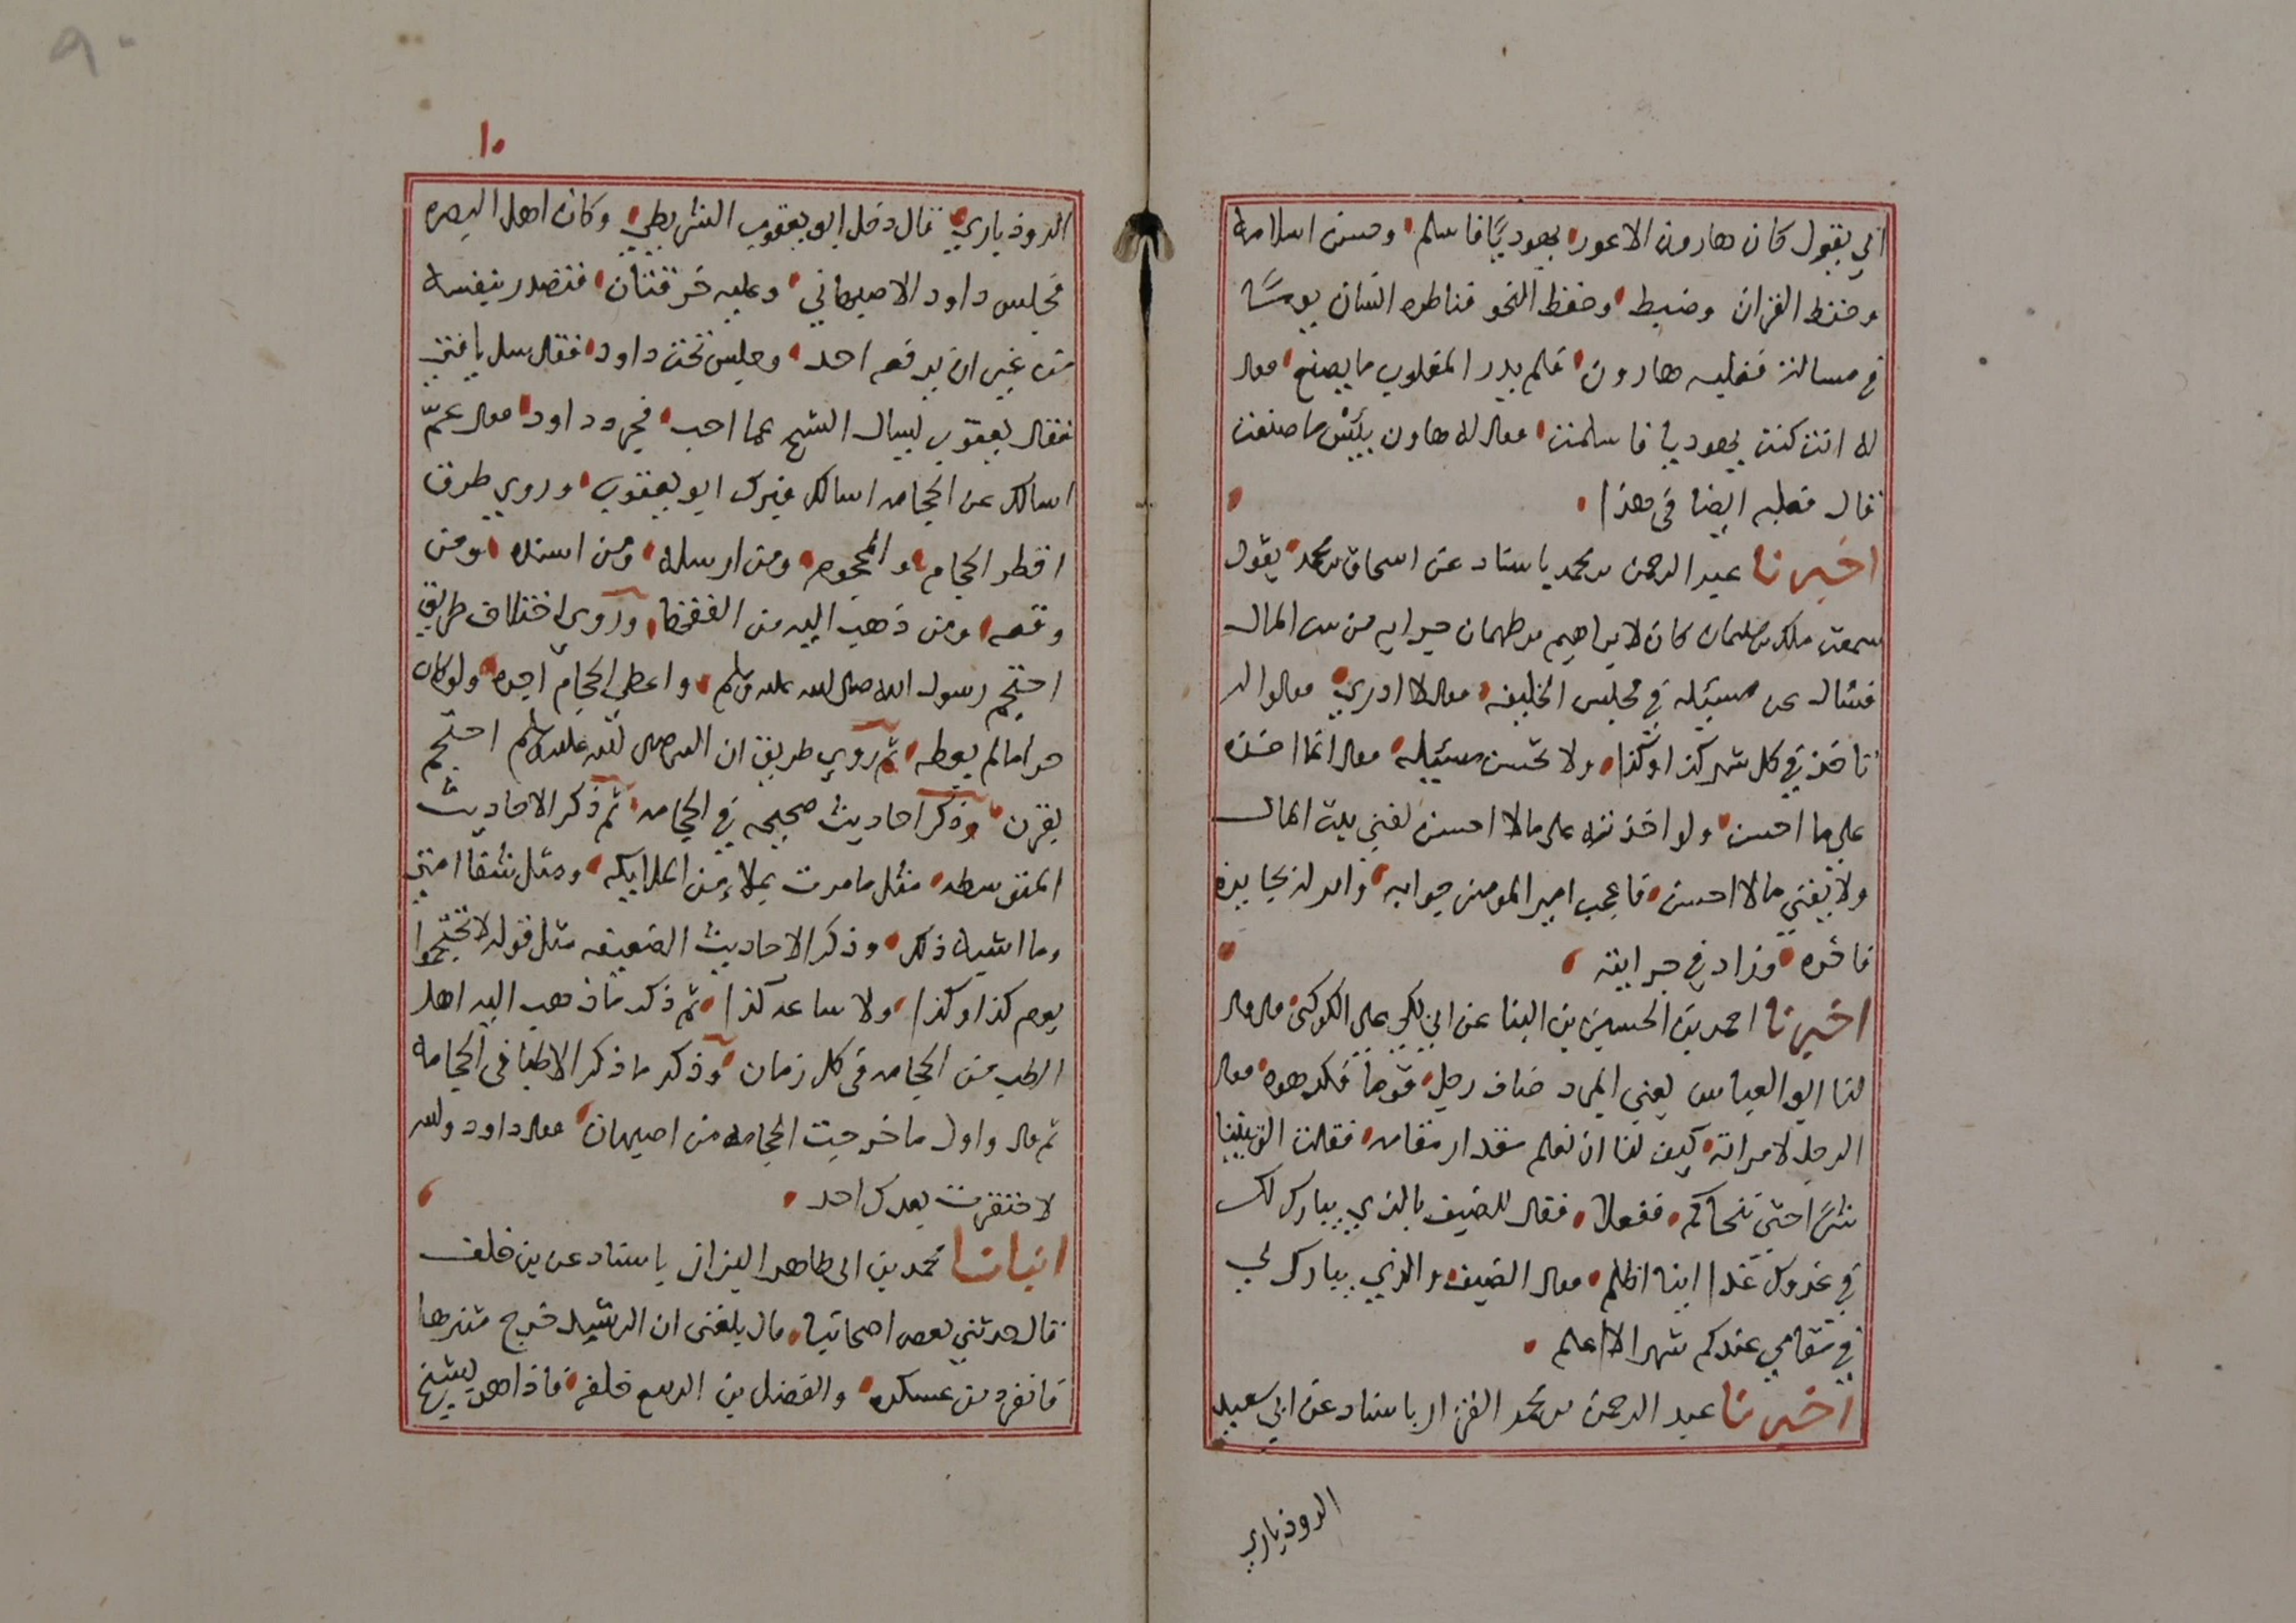 ابي يقول كان هارون الاعور يهوديًا فاسلم وحسن اسلامه
وحفظ القران وضبط وحفظ النحو فناظره انسان يومًا
في مسالة فغلبه هارون فلم يدر المغلوب ما يصنع فقال
له انت كنت يهوديا فاسلمت فقال له هاون بئس ما صنعت
قال فغلبه ايضا في هذا
اخبرنا عبد الرحمن بن محمد باسناد عن اسحاق بن محمد يقول
سمعت ملك بن سليمان كان لابراهيم بن طهمان جرايه من بيت المال
فسئال عن مسئله في مجلس الخليفه فقال لا ادري فقالوا له
تاخذ في كل شهر كذا وكذا ولا تحسن مسئله فقال انما اخذه
علي ما احسن ولو اخذته على مالا احسن لفني بيت المال
ولا يفني مالا احسن فاعجب امير المومنين جوابه وامر له بجايزه
فاخره وزاد في جرايته
اخبرنا احمد بن الحسين بن البنا عن ابي بكر علي الكوكبي قال قال
لنا ابو العباس يعني المبرد ضاف رجل قوماً فكرهوه فقال
الرجل لامراته كيف لنا ان نعلم مقدار مقامه فقالت الق بيننا
شرًا حتى نتحاكم ففعلا فقال للضيف بالذي يبارك لك
في غدوك غدا اينا اظلم فقال الضيف والذي يبارك لي
في مقامي عندكم شهرا لا اعلم
اخبرنا عبد الرحمن بن محمد القزاز باسناد عن ابي سعيد
الروذباري
١٠
الروذباري قال دخل ابو يعقوب الشريطي وكان اهل البصره
مجلس داود الاصبهاني وعليه خرقتان فتصدر بنفسه
من غير ان يرفعه احد وجلس تحت داود فقال سل يا فتى
فقال يعقوب ليسال الشيخ عما احب فحرد داود فقال عمّ
اسالك عن الحجامه اسالك فبرك ابو يعقوب وروي طرق
افطر الحجام والمحجوم ومن ارسله ومن اسنده ومن
وقفه ومن ذهب اليه من الفقها وروى اختلاف طريق
احتجم رسول الله صلى الله عليه وسلم واعطى الحجام اجره ولو كان
حراما لم يعطه ثم روي طريق ان النبي صلى الله عليه وسلم احتجم
بقرن وذكر احاديث صحيحه في الحجامه ثم ذكر الاحاديث
المتوسطه مثل ما مررت بملاءٍ من الملايكه ومثل شفا امتي
وما اشبه ذلك وذكر الاحاديث الضعيفه مثل قوله لا تحتجموا
يوم كذا وكذا ولا ساعه كذا ثم ذكر ما ذهب اليه اهل
الطب من الحجامه في كل زمان وذكر ما ذكر الاطبا في الحجامه
ثم قال واول ما خرجت الحجامه من اصبهان فقال داود والله
لا حقرت بعدك احد
انبانا محمد بن ابى طاهر البزاز باسناد عن بن خلف
قال حدثني بعض اصحابنا قال بلغنى ان الرشيد خرج متنزها
فانفرد من عسكره والفضل بن الربيع خلفه فاذا هو بشيخ
٩٠